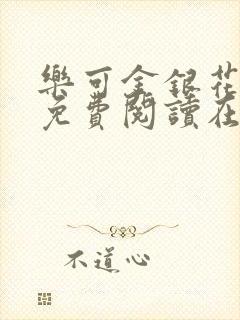 樂可金銀花
免費閱讀在
不道心